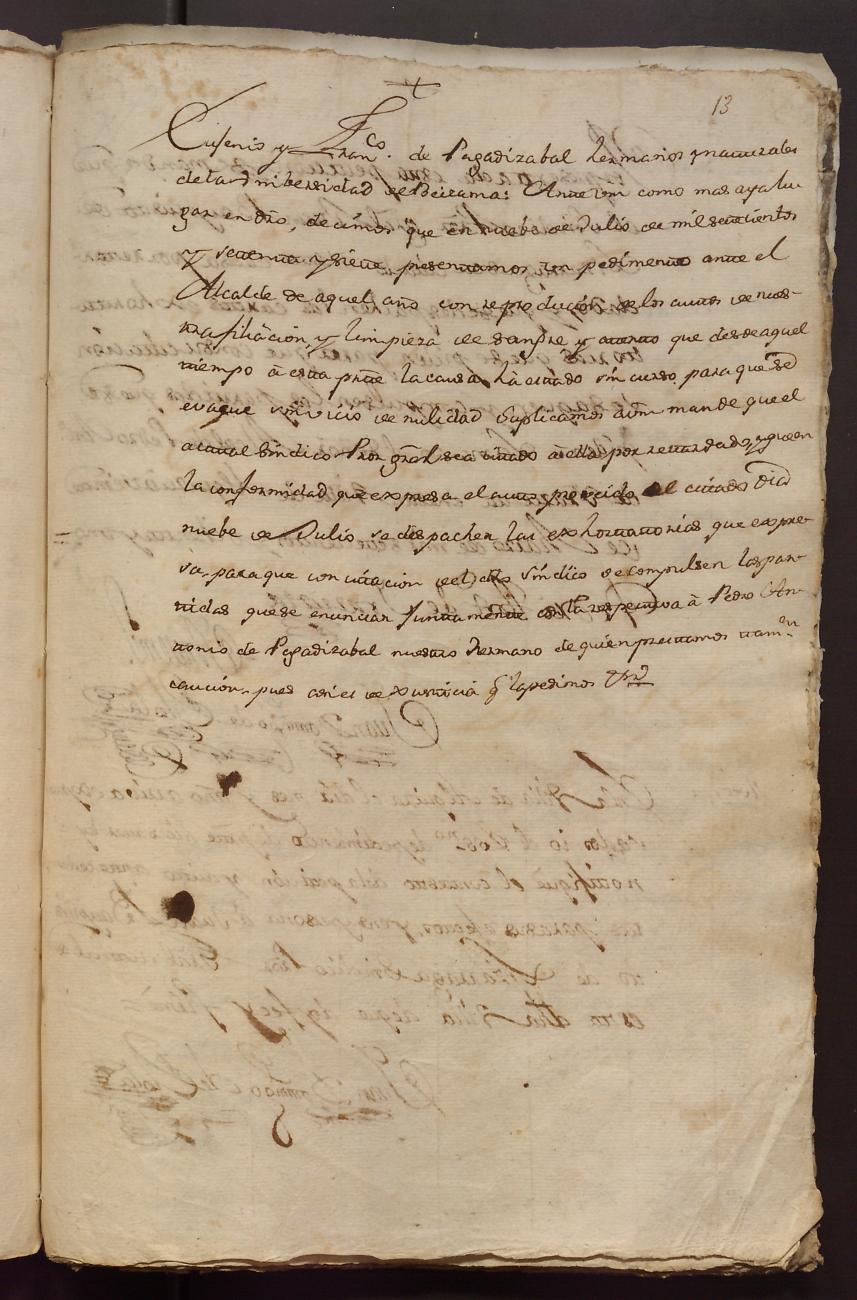 13
Eusenio y Franco. de Pagadizabal hermanos y naturales
de la Vnibersidad de Beizama: Ante vm como mas aya lu-
gar en dro, decimos que en nuebe de Julio de mil setecientos
y setenta y siete presentamos un pedimento ante el
Alcalde de aquel año con reproducion de los autos de nues-
tra filiacion, y limpieza de sangre y atento que desde aquel
tiempo â esta prte la causa hà estado sin curso, para que se
evaque sin vicio de nulidad Suplicamos a vm mande que el
actual Sindico Pror Gral sea citado â ella por retardada, y que en
la conformidad que expresa el auto proveido el citado dia
nuebe de Julio se despachen las exhortatorias que expre-
sa, para que con citacion del dho sindico se compulsen las par-
tidas que se enuncian Juntamente con la respectiva â Pedro An-
tonio de Pagadizabal nuestro Hermano de quien prestamos tamn
caucion, pues asi es de Justicia q la pedimos